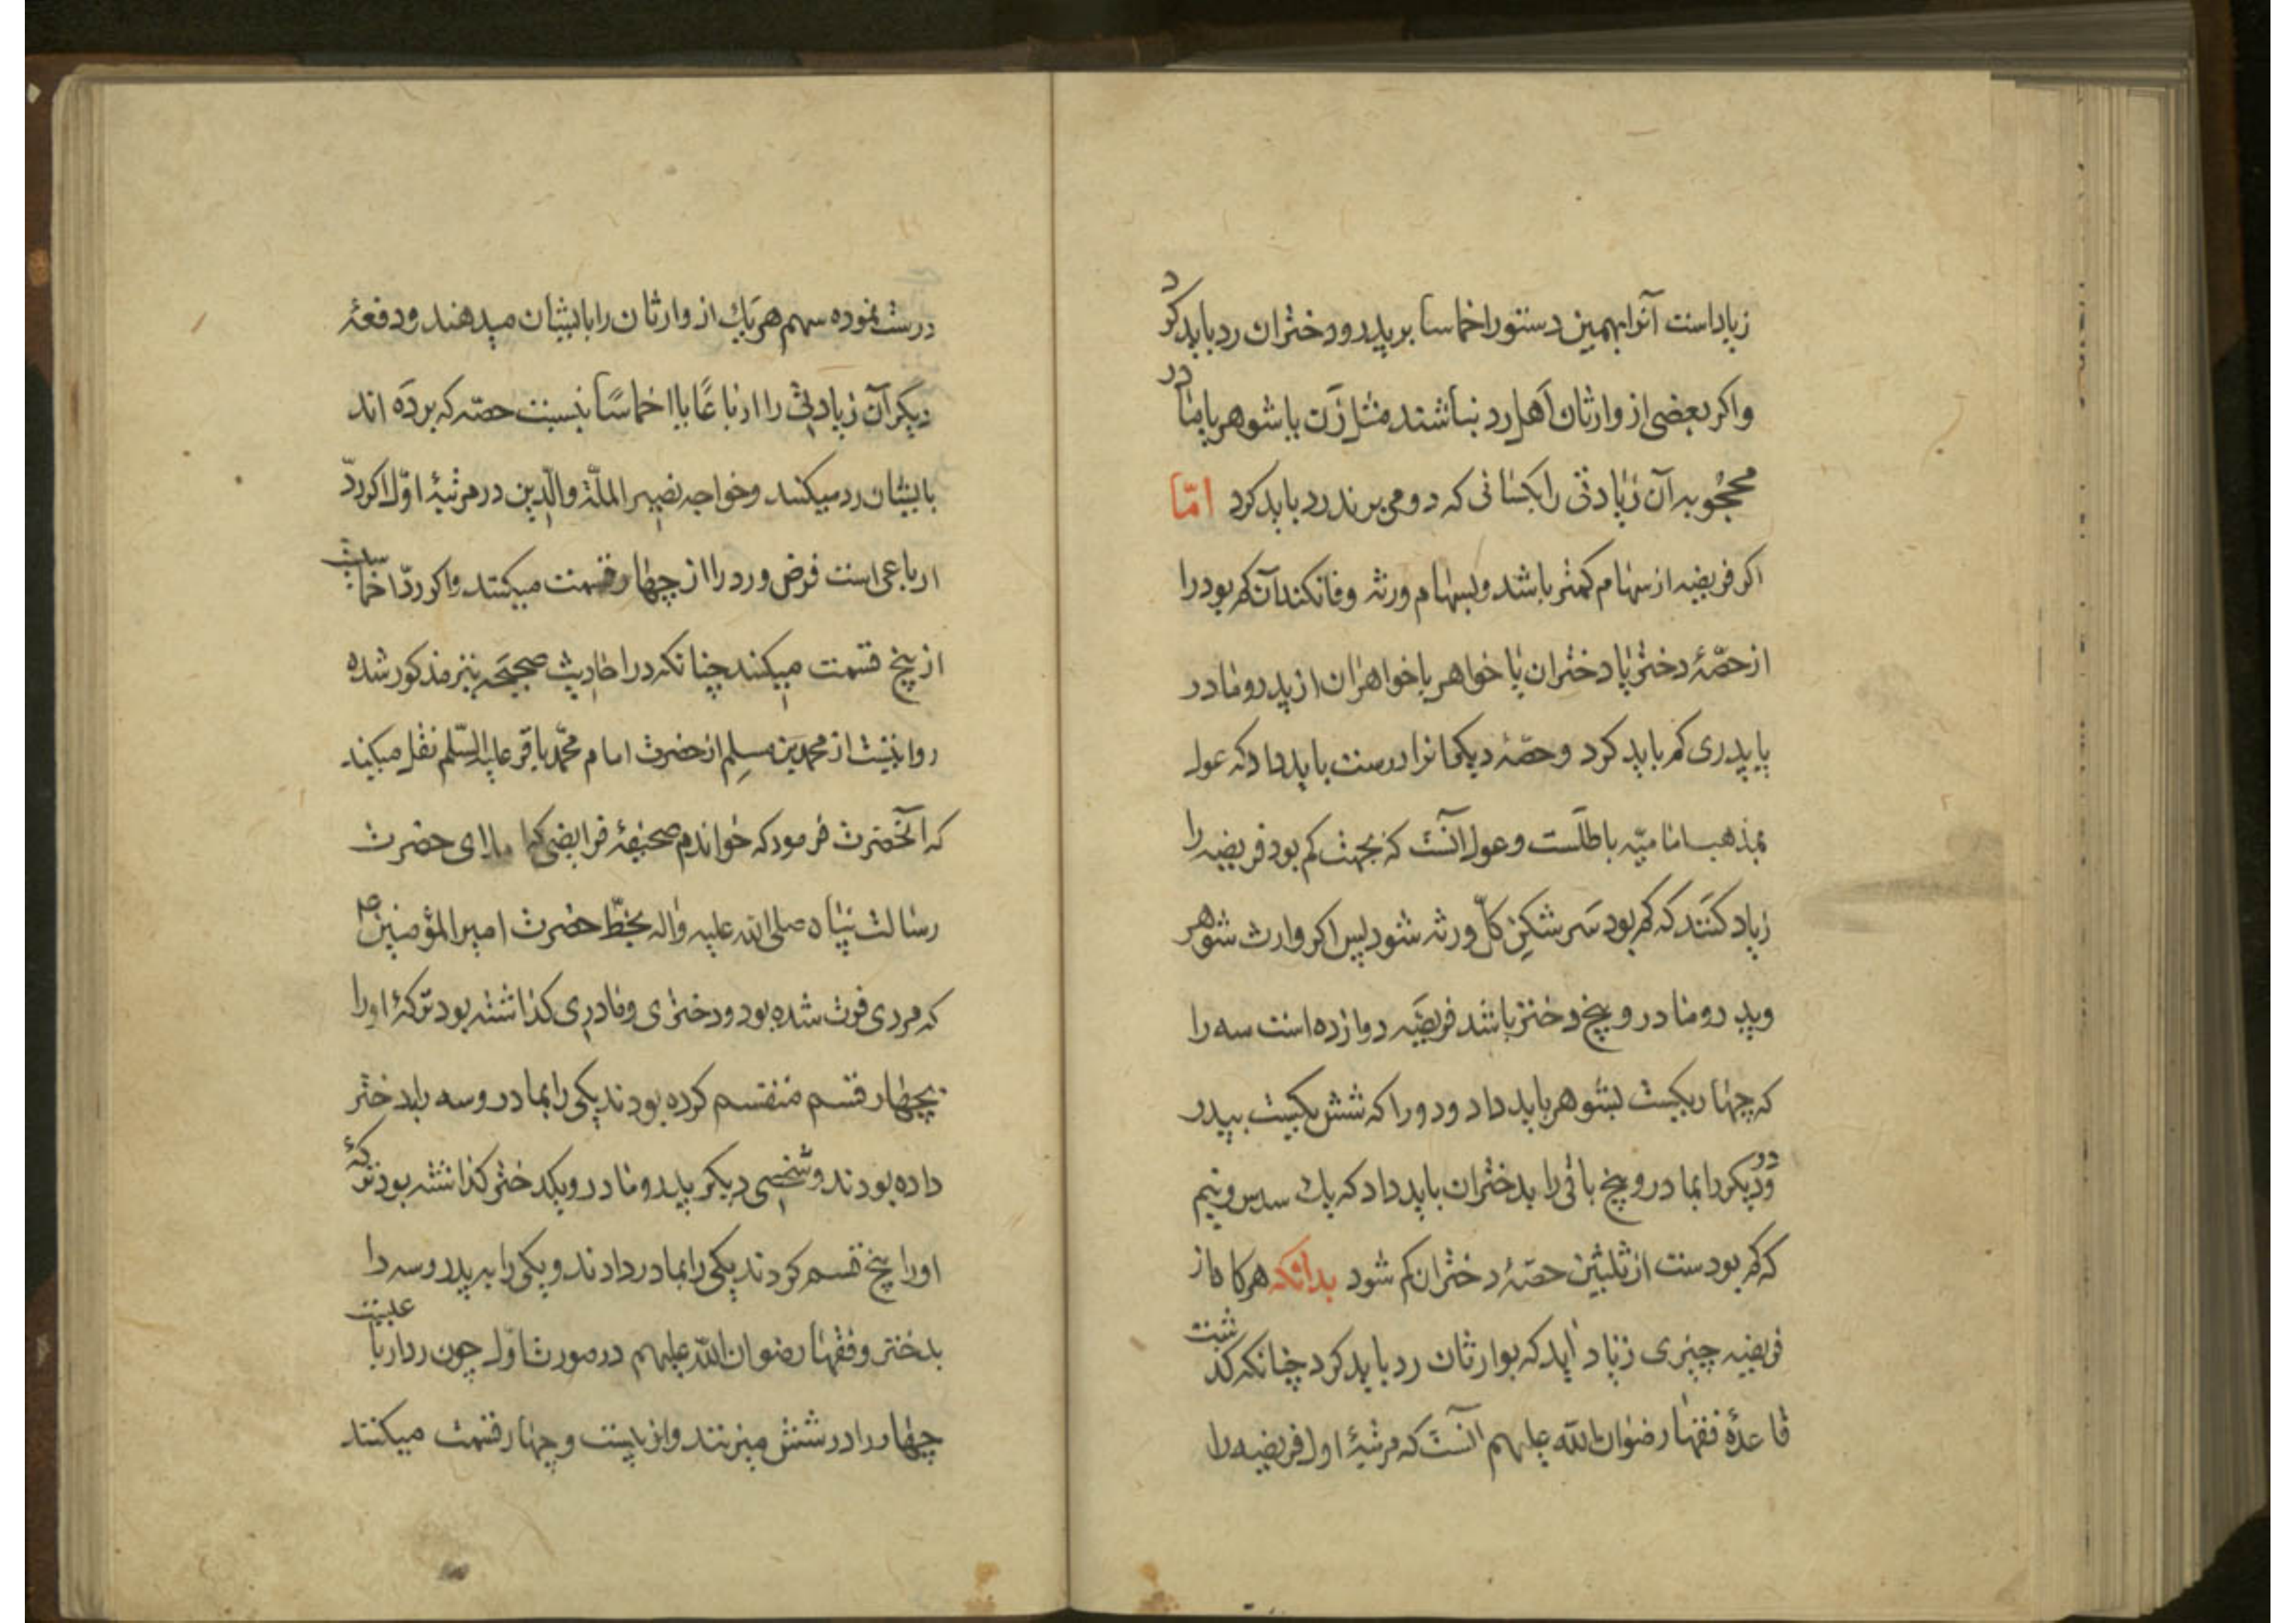 زیاد است آنرا بهمین دستور اخماسا بر پدر و دختران رد باید کرد
و اکر بعضی از وارثان اهل رد نباشند مثل زن یا شوهر یا مادر
محجوبه آن زیادتی را بکسانی که رد می برند رد باید کرد امّا
اکر فریضه از سهام کمتر باشد و بسهام ورثه وفا نکند آن کم بود را
از حصّهٔ دختر یا دختران یا خواهر یا خواهران از پدر و مادر
یا پدری کم باید کرد و حصّهٔ دیکرانرا درست باید داد که عول
بمذهب امامیّه باطلست و عول آنست که بجهت کم بود فریضه را
زیاد کنند که کم بود سرشکن کلّ ورثه شود پس اکر وارث شوهر
و پدر و مادر و پنج دختر باشد فریضه دوازده است سه را
که چهار یکیست بشوهر باید داد و دو را که شش یکیست بپدر
و دو دیکر را بمادر و پنج باقی را بدختران باید داد که یك سدس و نیم
که کم بودست از ثلثین حصّهٔ دختران کم شود بدانکه هرکاه از
فریضه چیزی زیاد آید که بوارثان رد باید کرد چنانکه کذشت
قاعدهٔ فقها رضوان الله علیهم آنست که مرتبهٔ اول فریضه را
درست نموده سهم هر یك از وارثان را بایشان میدهند و دفعهٔ
دیکر آن زیادتی را ارباعًا یا اخماسًا بنسبت حصّه که برده اند
بایشان رد میکنند و خواجه نصیر الملّة والدّین در مرتبهٔ اوّل اکر ردّ
ارباعی است فرض و رد را از چهار قسمت میکنند و اکر ردّ اخماسیست
از پنج قسمت میکنند چنانکه در احادیث صحیحه نیز مذکور شده
روایتیست از محمد بن مسلم از حضرت امام محمّد باقر علیه السّلم نقل میکند
که آنحضرت فرمود که خواندم صحیفهٔ فرایضی که املای حضرت
رسالت پناه صلی الله علیه واله بخطّ حضرت امیر المؤمنین ع
که مردی فوت شده بود و دختری و مادری کذاشته بود ترکهٔ او را
بچهار قسم منقسم کرده بودند یکی را بمادر و سه را بدختر
داده بودند و شخصی دیکر پدر و مادر و یکدختر کذاشته بود ترکهٔ
او را پنج قسم کردند یکی را بمادر دادند و یکی را به پدر و سه را
بدختر و فقها رضوان الله علیهم در صورت اوّل چون رد ارباعیست
چهار را در شش میزنند و از بیست و چهار قسمت میکنند